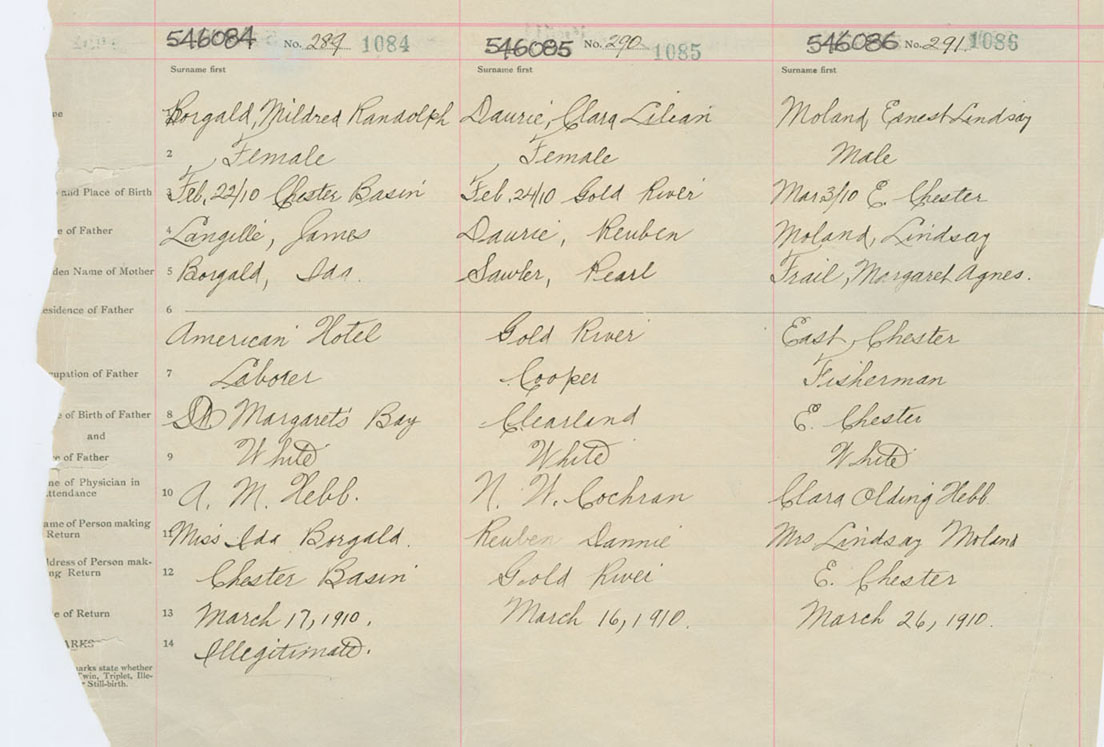 546084 No. 289 1084 546085 No. 290 1085 546086 No. 291 1086
Surname first Surname first Surname first
Borgald, Mildred Randolph Daurie, Clara Lilian Moland, Ernest Lindsay
2 Female Female Male
and Place of Birth 3 Feb. 22/10 Chester Basin Feb. 24/10 Gold River Mar 3/10 E. Chester
e of Father 4 Langille, James Daurie, Reuben Moland, Lindsay
den Name of Mother 5 Borgald, Ida. Sawler, Pearl Trail, Margaret Agnes.
esidence of Father 6
American Hotel Gold River East Chester
upation of Father 7 Laborer Cooper Fisherman
e of Birth of Father 8 Margaret's Bay Clearland E. Chester
and
e of Father 9 White White White
ne of Physician in
ttendance 10 A. M. Hebb. N. W. Cochran Clara Olding Hebb
ame of Person making
Return 11 Miss Ida Borgald. Reuben Dannie Mrs Lindsay Moland
ddress of Person mak-
ng Return 12 Chester Basin Goold River E. Chester
e of Return 13 March 17, 1910. March 16, 1910. March 26, 1910.
ARKS 14 Illegitimate.
arks state whether
Twin, Triplet, Ille-
Still-birth.